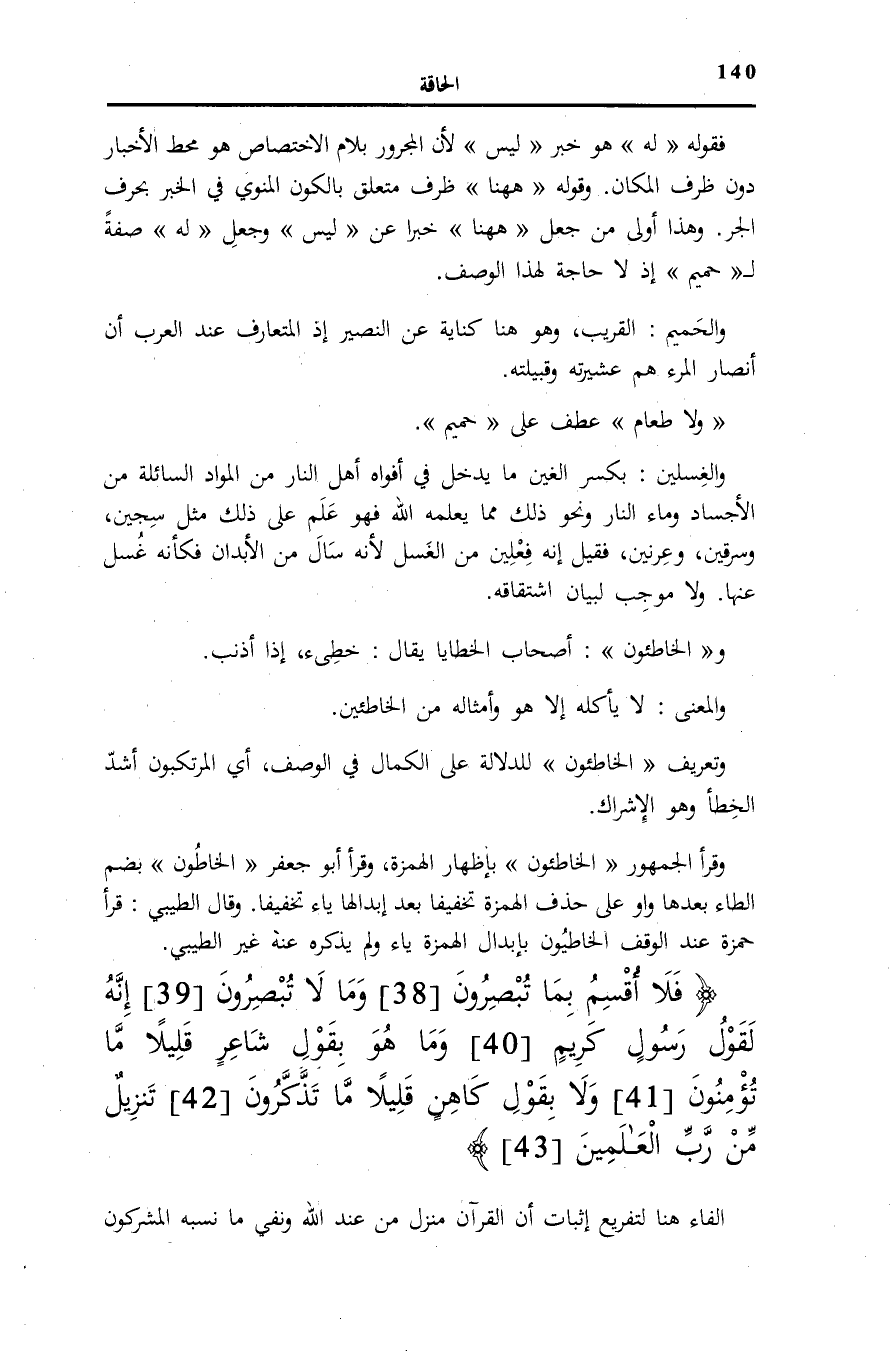 140
الحاقة
فقوله « له » هو خبر « ليس » لأن المجرور بلام الاختصاص هو محط الأخبار
دون ظرف المكان. وقوله « ههنا » ظرف متعلق بالكون المنوي في الخبر بحرف
الجر. وهذا أولى من جعل « ههنا » خبرا عن « ليس » وجعلِ « له » صفةً
لـ« حميم » إذ لا حاجة لهذا الوصف.
والحَميم : القريب، وهو هنا كناية عن النصير إذ المتعارف عند العرب أن
أنصار المرء هم عشيرته وقبيلته.
« ولا طعام » عطف على « حميم ».
والغِسلين : بكسر الغين ما يدخل في أفواه أهل النار من المواد السائلة من
الأجساد وماء النار ونحو ذلك مما يعلمه الله فهو عَلَم على ذلك مثل سِجين،
وسرقين، وعِرنين، فقيل إنه فِعْلِين من الغَسل لأنه سَالَ من الأبدان فكأنه غُسل
عنها. ولا موجب لبيان اشتقاقه.
و« الخاطئون » : أصحاب الخطايا يقال : خطِىء، إذا أذنب.
والمعنى : لا يأكله إلا هو وأمثاله من الخاطئين.
وتعريف « الخاطئون » للدلالة على الكمال في الوصف، أي المرتكبون أشدّ
الخِطأ وهو الإشراك.
وقرأ الجمهور « الخاطئون » بإظهار الهمزة، وقرأ أبو جعفر « الخاطُون » بضم
الطاء بعدها واو على حذف الهمزة تخفيفا بعد إبدالها ياء تخفيفا. وقال الطيبي : قرأ
حمزة عند الوقف الخاطيُون بإبدال الهمزة ياء ولم يذكره عنه غير الطيبي.
﴿ فَلَا أُقْسِمُ بِمَا تُبْصِرُونَ [38] وَمَا لَا تُبْصِرُونَ [39] إِنَّهُ
لَقَوْلُ رَسُولٍ كَرِيمٍ [40] وَمَا هُوَ بِقَوْلِ شَاعِرٍ قَلِيلًا مَّا
تُؤْمِنُونَ [41] وَلَا بِقَوْلِ كَاهِنٍ قَلِيلًا مَّا تَذَّكَّرُونَ [42] تَنزِيلٌ
مِّنْ رَّبِّ الْعَـٰلَمِينَ [43] ﴾
الفاء هنا لتفريع إثبات أن القرآن منزل من عند الله ونفي ما نسبه المشركون